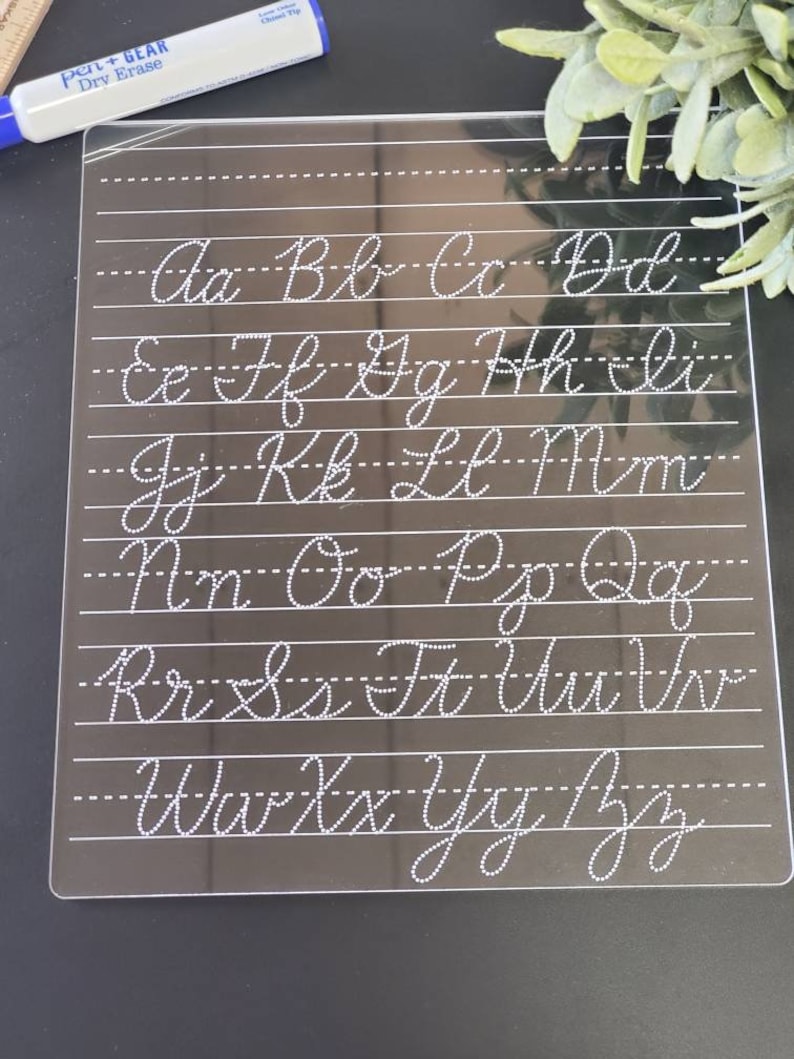 pen+GEAR
Dry Erase
Low Odor
Chisel Tip
Aa Bb Cc Dd
Ee Ff Gg Hh Ii
Jj Kk Ll Mm
Nn Oo Pp Qq
Rr Ss Tt Uu Vv
Ww Xx Yy Zz